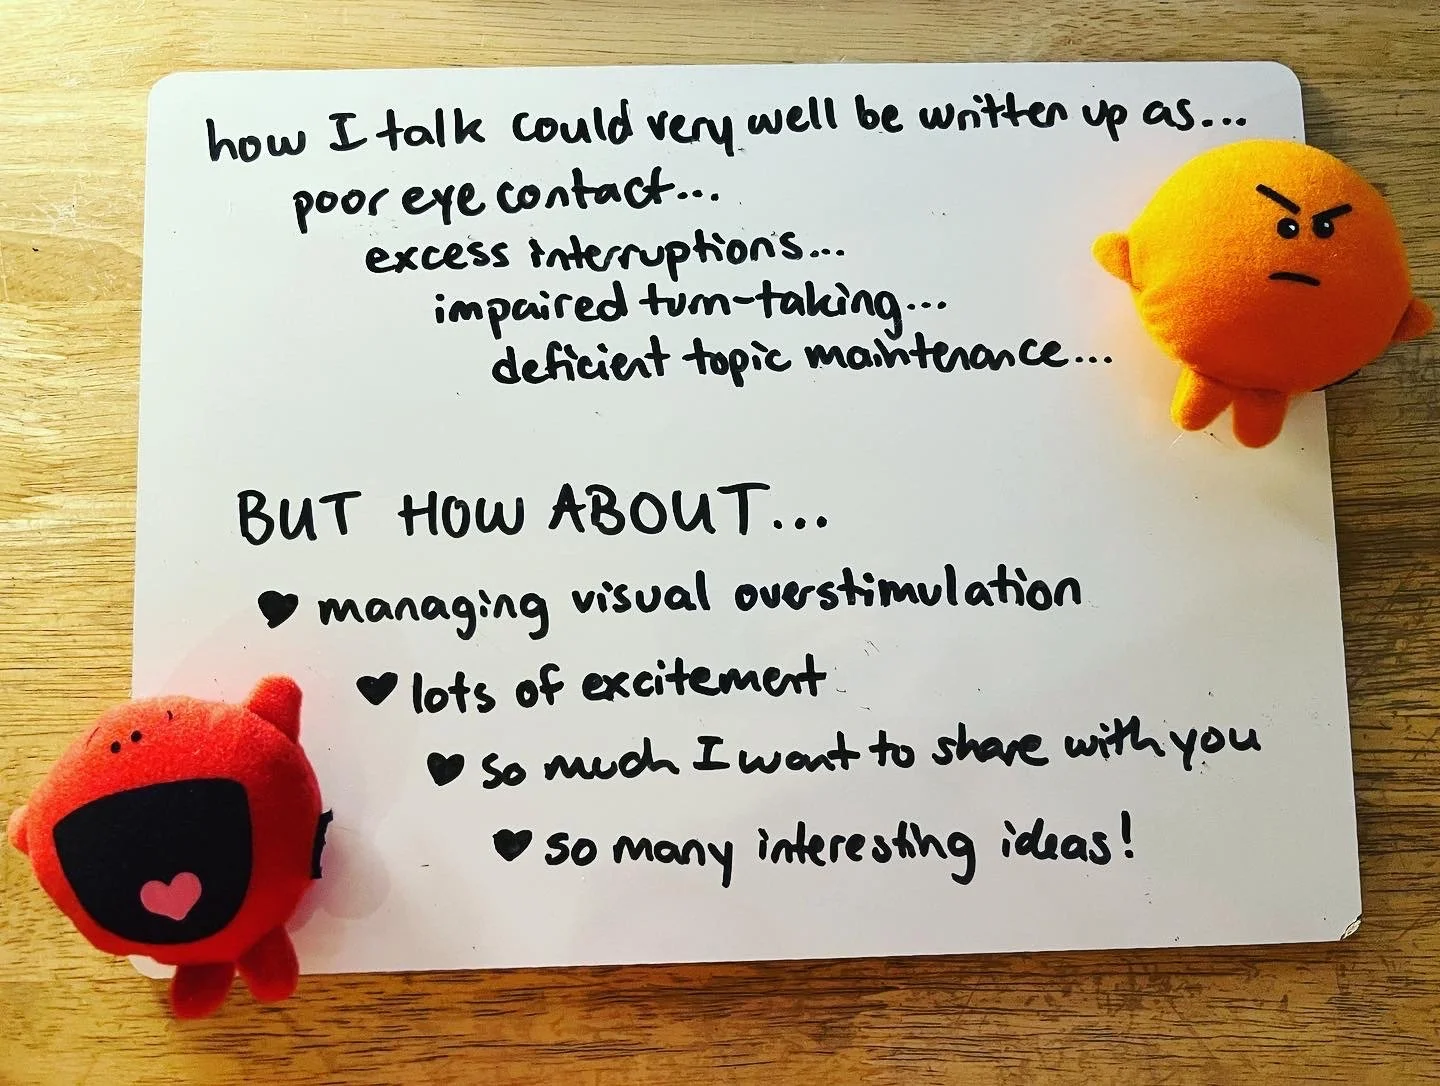 how I talk could very well be written up as...
poor eye contact...
excess interruptions...
impaired turn-taking...
deficient topic maintenance...
BUT HOW ABOUT...
♥ managing visual overstimulation
♥ lots of excitement
♥ so much I want to share with you
♥ so many interesting ideas!